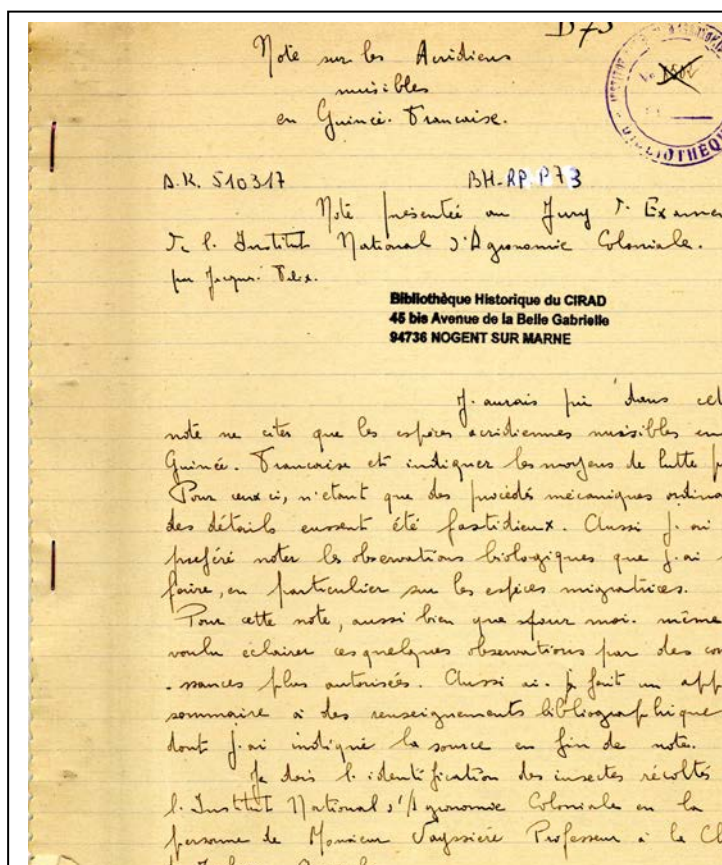 D73
Note sur les Acridiens
nuisibles
en Guinée. Francaise.
BIBLIOTHÈQUE
A.K. 510317
BH-RP-P73
Note présentée au Jury d. Examen
de l. Institut National d'Agronomie Coloniale.
par Jacques
Bibliothèque Historique du CIRAD
45 bis Avenue de la Belle Gabrielle
94736 NOGENT SUR MARNE
J. aurais pu dans cet
note ne citer que les espèces acridiennes nuisibles en
Guinée. Francaise et indiquer les moyens de lutte p
Pour ceux ci, n'etant que des procédés mécaniques ordina
des détails eussent été fastidieux. Aussi j. ai
préféré noter les observations biologiques que j. ai
faire, en particulier sur les espèces migratrices.
Pour cette note, aussi bien que pour moi. même
voulu eclairer ces quelques observations par des con
-ssances plus autorisées. Aussi ai. je fait un app
sommaire à des renseignements bibliographique
dont j. ai indiqué la source en fin de note.
Je dois l. identification des insectes récoltés
l. Institut National d'Agronomie Coloniale en la
personne de Monsieur Vayssière Professeur à